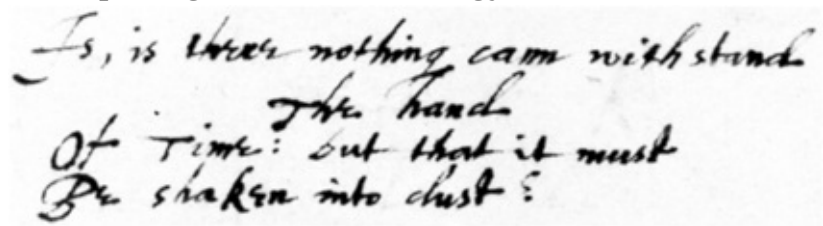 Is, is there nothing cann withstand
The hand
Of Time: but that it must
Be shaken into dust?